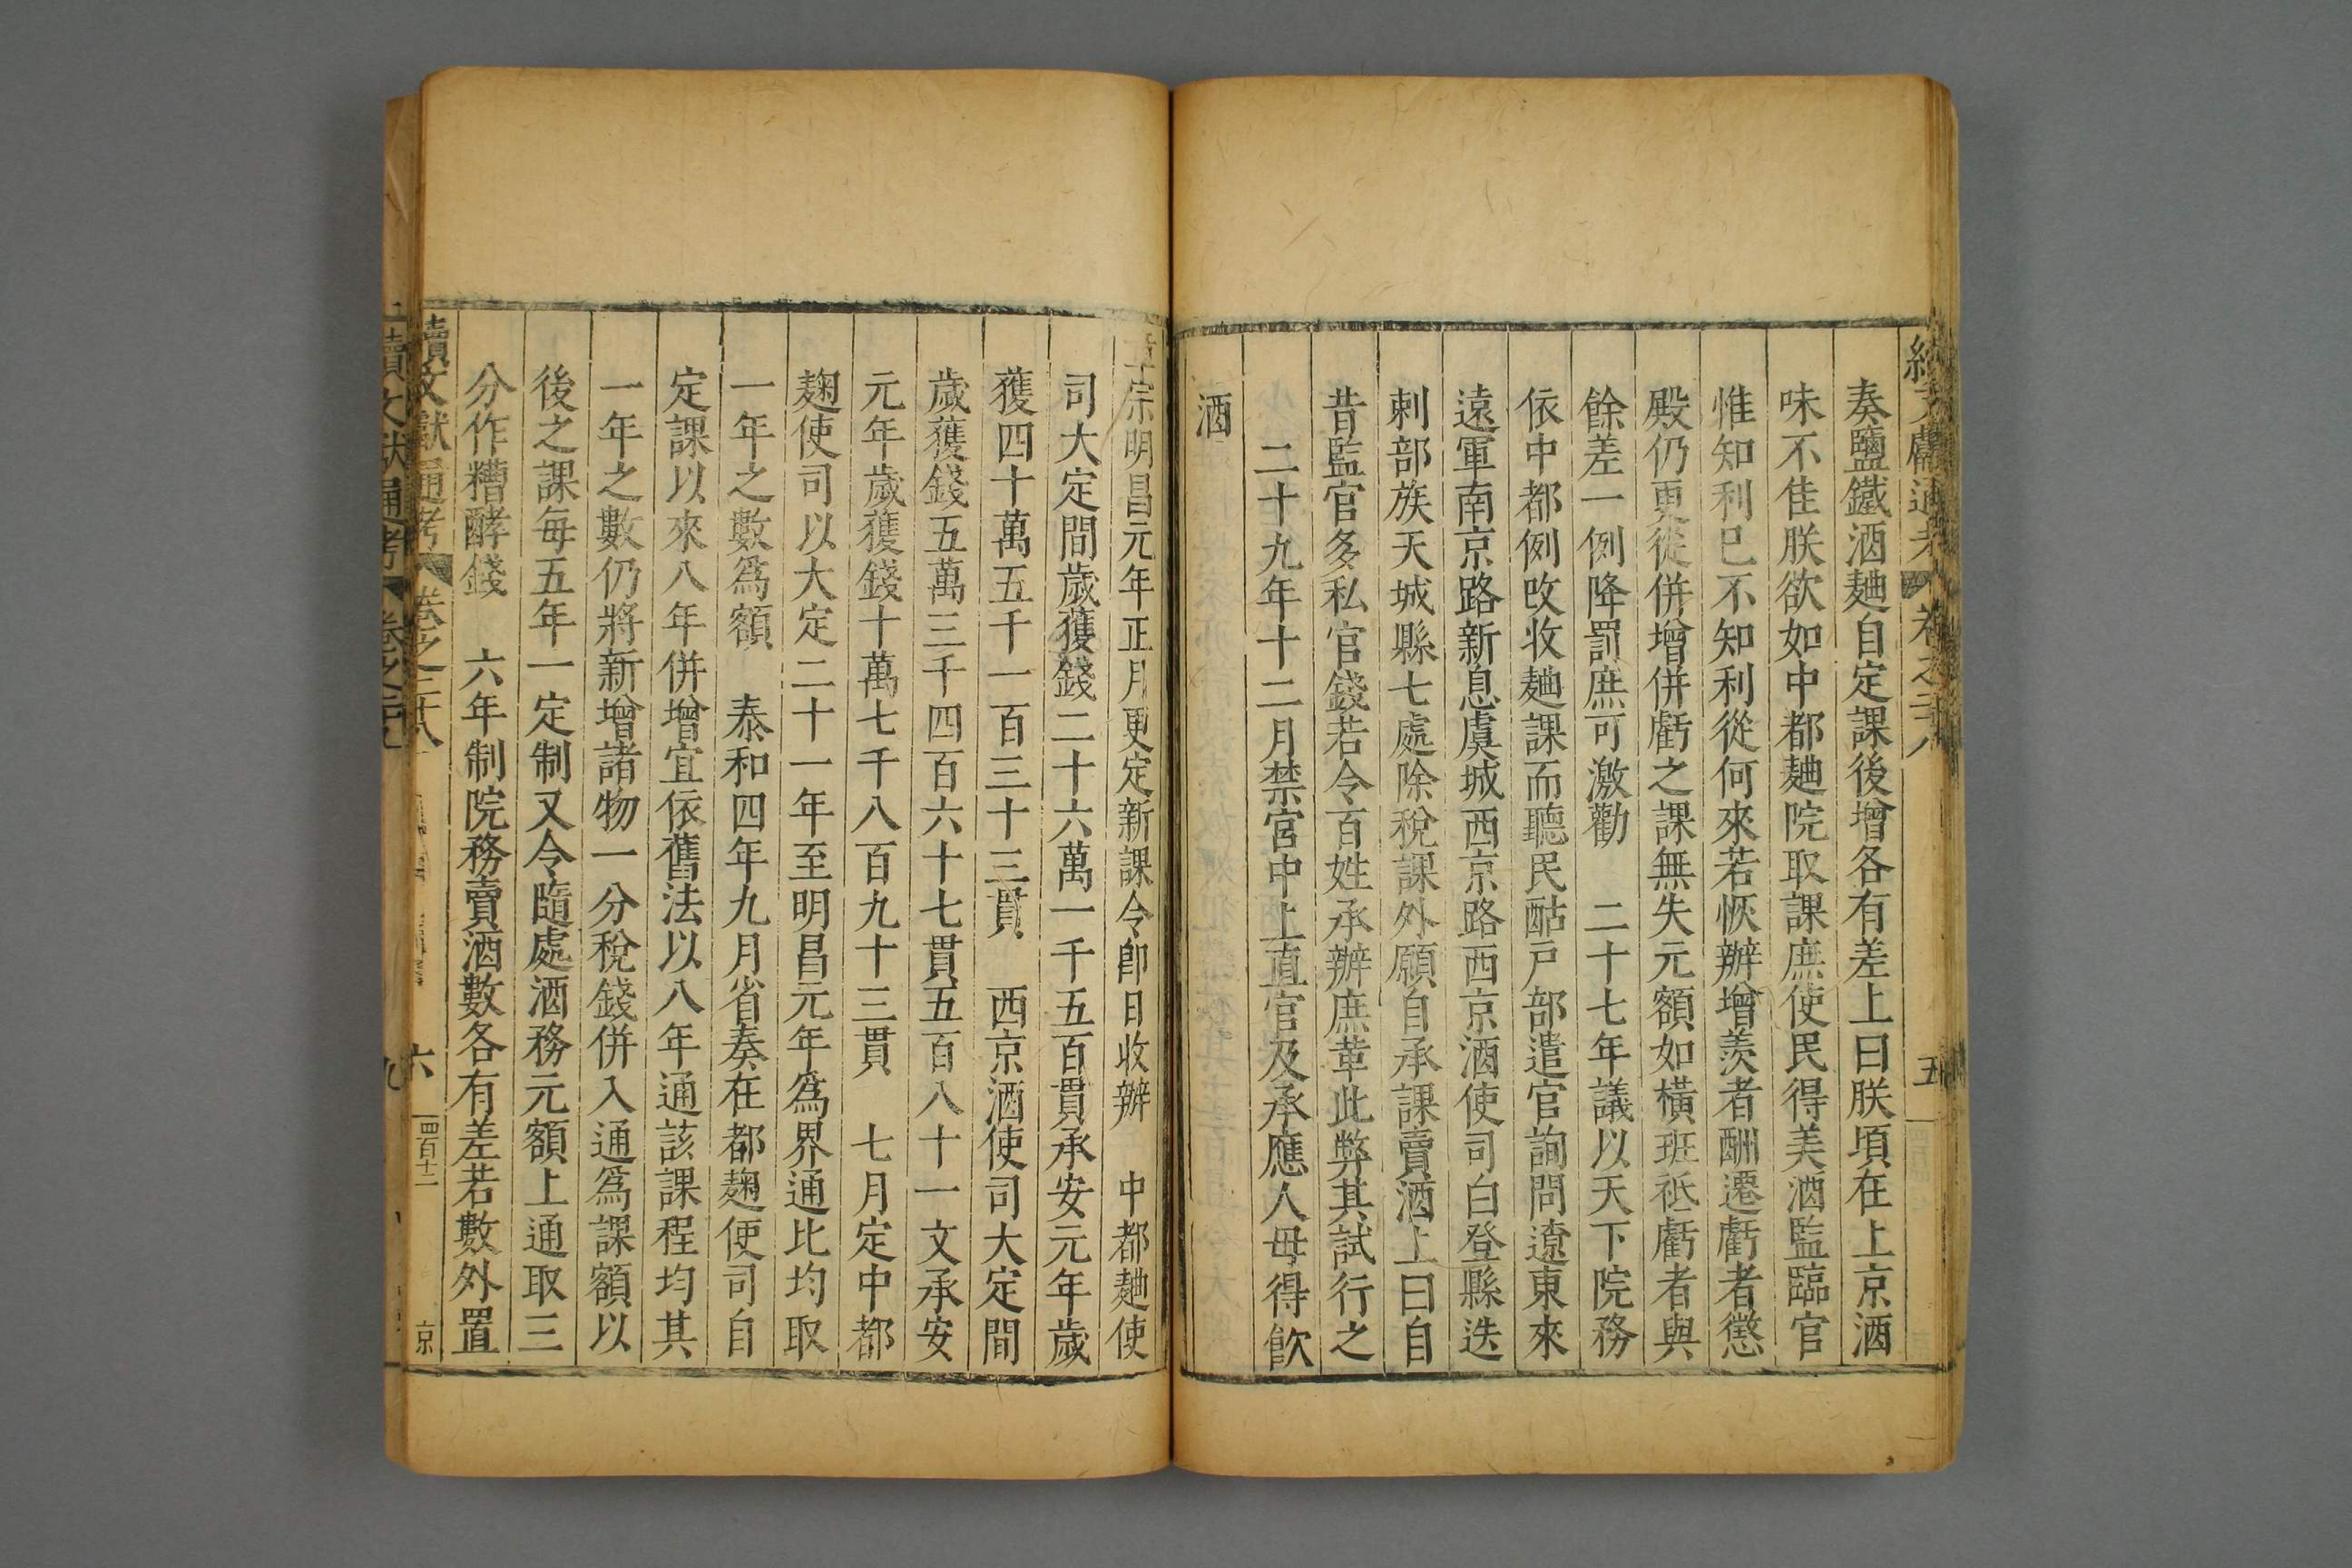 續文獻通考 卷之二十八 五
奏鹽鐵酒麯自定課後增各有差上曰朕頃在上京酒
味不佳朕欲如中都麯院取課庶使民得美酒監臨官
惟知利巳不知利從何來若恢辦增羨者酬遷虧者懲
殿仍更從併增併虧之課無失元額如橫班祗虧者與
餘差一例降罰庶可激勸 二十七年議以天下院務
依中都例改收麯課而聽民酤戸部遣官詢問遼東來
遠軍南京路新息虞城西京路西京酒使司白登縣迭
剌部族天城縣七處除稅課外願自承課賣酒上曰自
昔監官多私官錢若令百姓承辦庶革此弊其試行之
二十九年十二月禁宮中上直官及承應人毋得飲
酒
章宗明昌元年正月更定新課令卽日收辦 中都麯使
司大定間歲獲錢二十六萬一千五百貫承安元年歲
獲四十萬五千一百三十三貫 西京酒使司大定間
歲獲錢五萬三千四百六十七貫五百八十一文承安
元年歲獲錢十萬七千八百九十三貫 七月定中都
麹使司以大定二十一年至明昌元年爲界通比均取
一年之數爲額 泰和四年九月省奏在都麹使司自
定課以來八年併增宜依舊法以八年通該課程均其
一年之數仍將新增諸物一分稅錢併入通爲課額以
後之課每五年一定制又令隨處酒務元額上通取三
分作糟酵錢 六年制院務賣酒數各有差若數外置
續文獻通考 卷之二十八 六 四百十二 京
續文獻通考